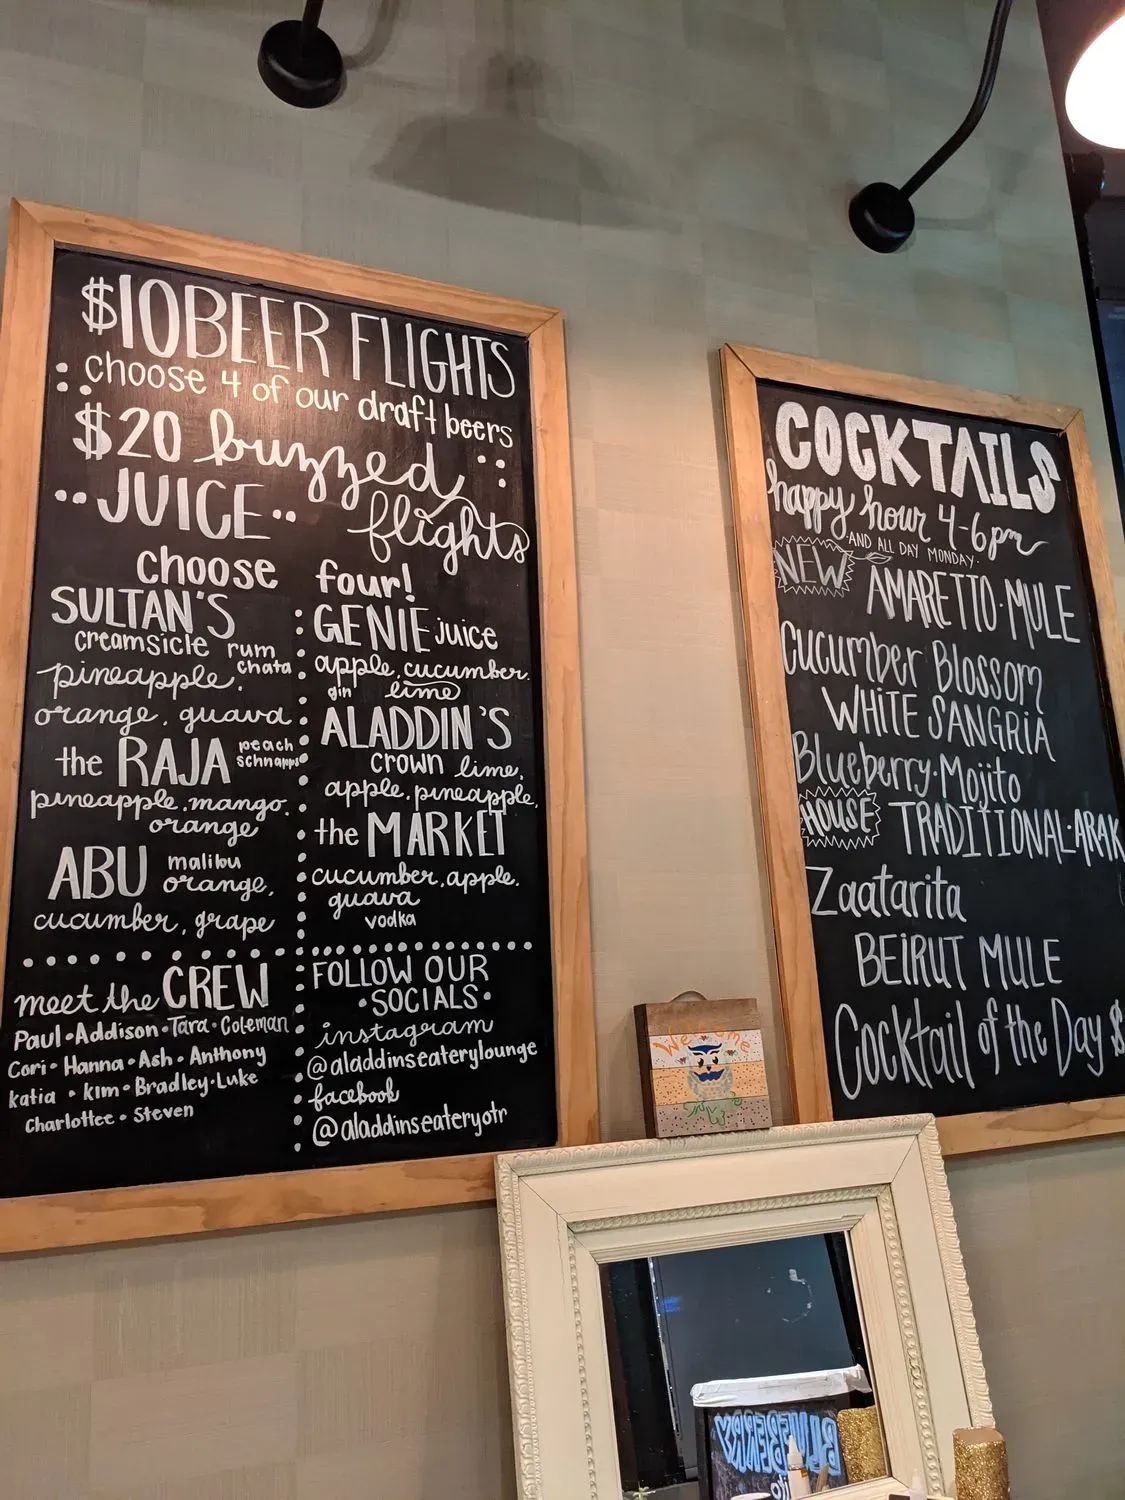 $10 BEER FLIGHTS
choose 4 of our draft beers
$20 buzzed
JUICE flights
choose four!
SULTAN'S
creamsicle rum
chata
pineapple.
orange, guava
the RAJA peach
schnapps
pineapple.mango.
orange
ABU malibu
orange,
cucumber, grape
GENIE juice
apple, cucumber.
gin lime
ALADDIN'S
crown lime,
apple, pineapple,
the MARKET
cucumber, apple.
guava
vodka
meet the CREW
Paul • Addison • Tara • Coleman
Cori • Hanna • Ash • Anthony
Katia • Kim • Bradley • Luke
Charlottee • Steven
FOLLOW OUR
• SOCIALS •
instagram
@aladdinseaterylounge
facebook
@aladdinseateryotr
COCKTAILS
happy hour 4-6pm
·AND ALL DAY MONDAY·
NEW AMARETTO·MULE
Cucumber Blossom
WHITE SANGRIA
Blueberry·Mojito
HOUSE TRADITIONAL·ARAK
Zaatarita
BEIRUT MULE
Cocktail of the Day $
Welcome
BLUEBERRY